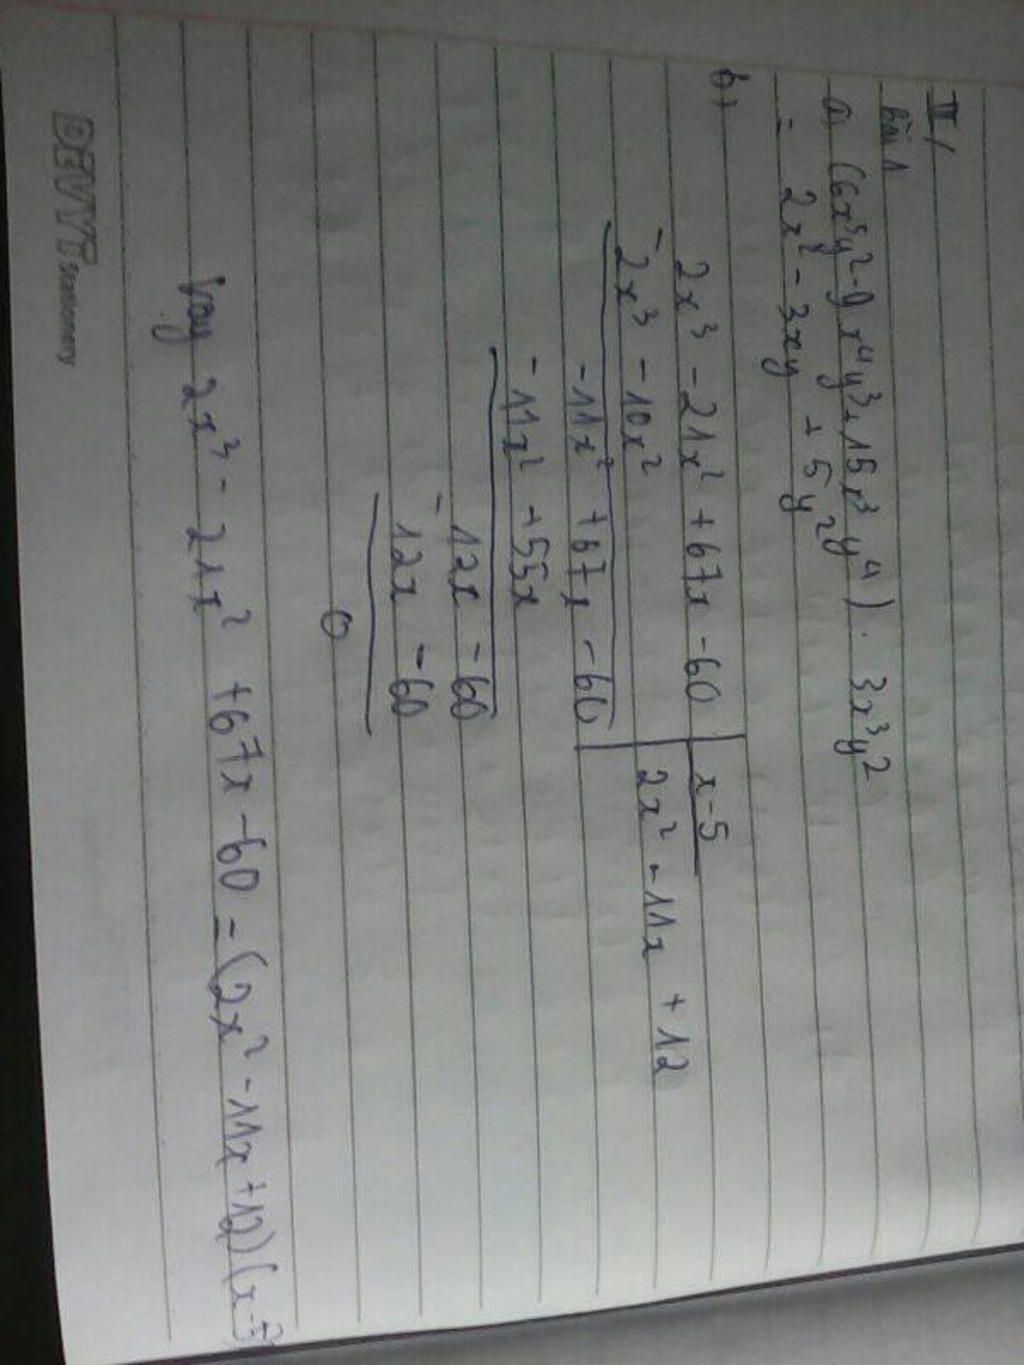 II/
Bài 1
a) (6x⁵y² - 9x⁴y³ + 15x³y⁴) : 3x³y²
= 2x² - 3xy + 5y²
b)
2x³ - 21x² + 67x - 60 | x - 5
- 2x³ - 10x² | 2x² - 11x + 12
-11x² + 67x - 60
- -11x² + 55x
12x - 60
- 12x - 60
0
Vậy 2x³ - 21x² + 67x - 60 = (2x² - 11x + 12)(x - 5)
DEVYT stationery